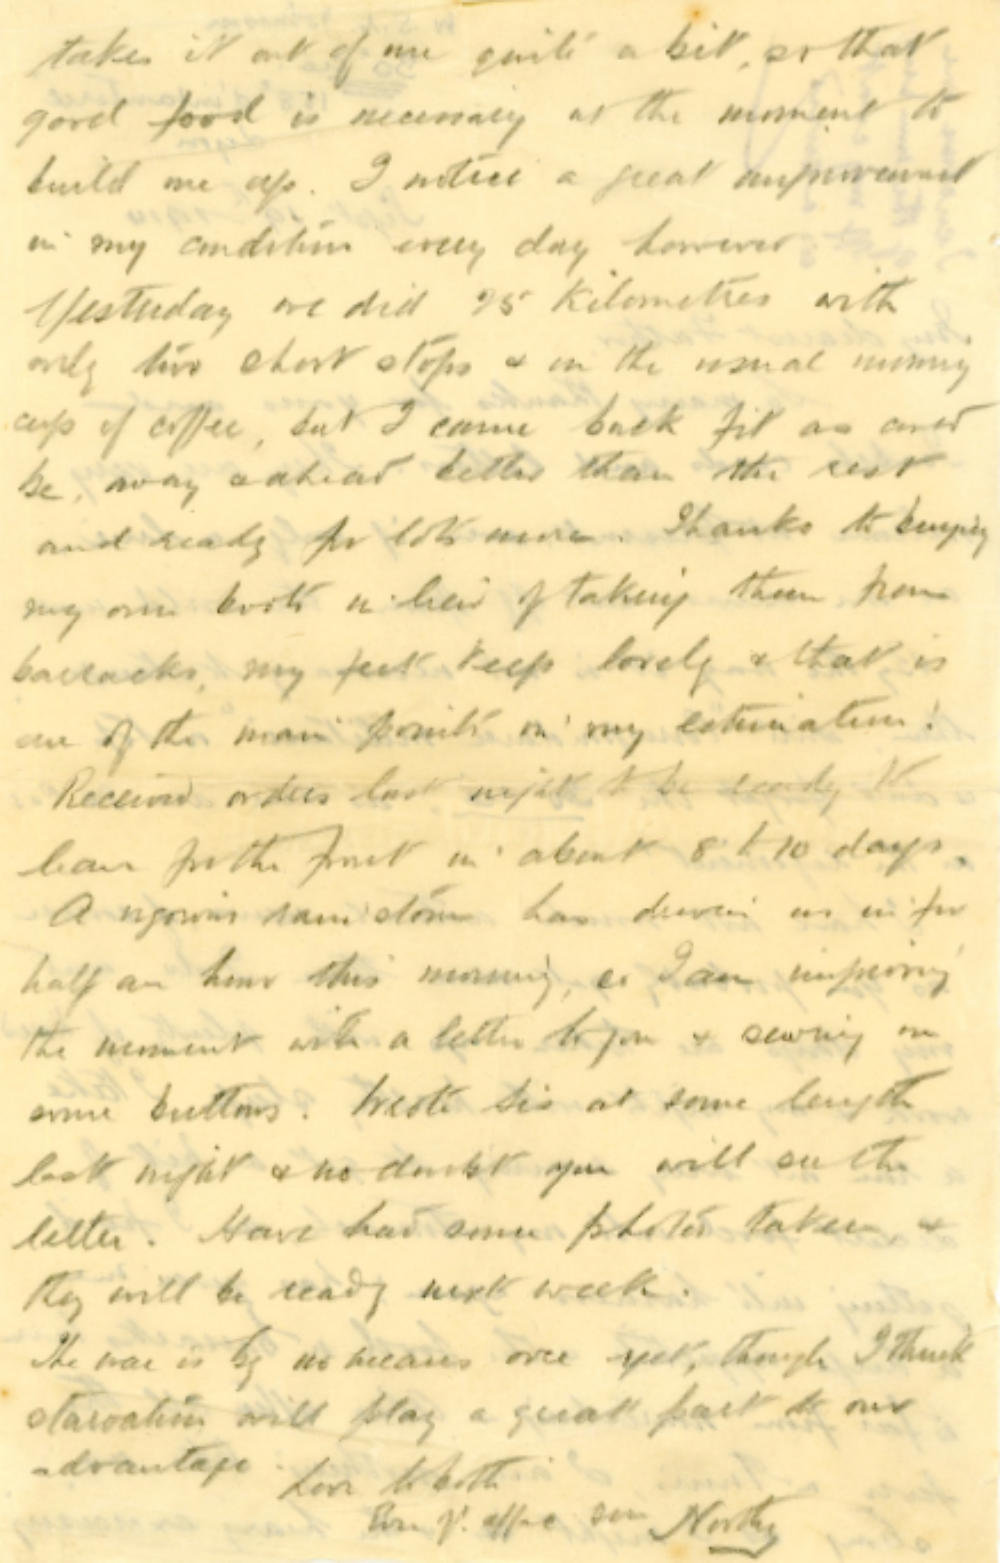 takes it out of me quite a bit, so that
good food is necessary at the moment to
build me up. I notice a great improvement
in my condition every day however
Yesterday we did 25 Kilometres with
only two short stops & on the usual morning
cup of coffee, but I came back fit as could
be, away ahead better than the rest
and ready for lots more. Thanks to buying
my own boots in lieu of taking them from
barracks, my feet keep lovely & that is
one of the main points in my estimation!
Received orders last night to be ready to
leave for the front in about 8 to 10 days.
A vigorous rain storm has driven us in for
half an hour this morning, so I am improving
the moment with a letter to you & sewing on
some buttons. Wrote Sis at some length
last night & no doubt you will see the
letter. Have had some photos taken &
they will be ready next week.
The war is by no means over yet, though I think
starvation will play a great part to our
advantage.
Love to both
Your affec son